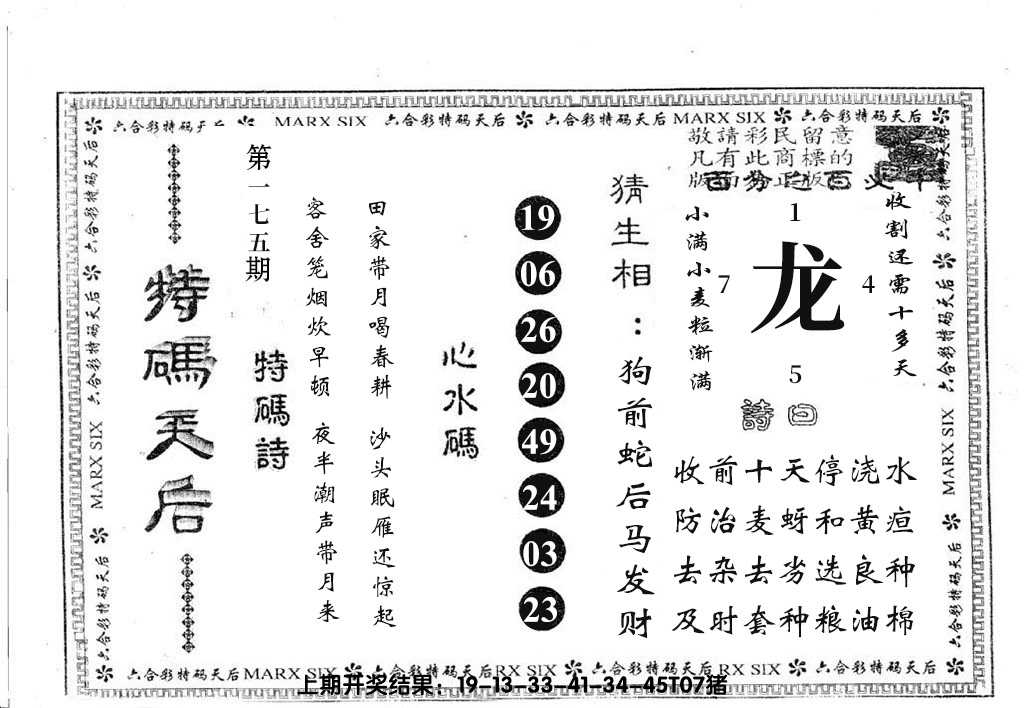 六合彩特码天后 MARX SIX 六合彩特码天后 六合彩特码天后 MARX SIX 六合彩特码天后
敬請彩民留意
凡有此商標的
版面為正版
特碼天后
第一七五期
特碼詩
客舍笼烟炊早顿 夜半潮声带月来
田家带月喝春耕 沙头眠雁还惊起
心水碼
19
06
26
20
49
24
03
23
猜生相：狗前蛇后马发财
小满小麦粒渐满
收割还需十多天
1
7 龙 4
5
詩曰
收前十天停浇水
防治麦蚜和黄疸
去杂去劣选良种
及时套种粮油棉
六合彩特码天后
MARX SIX
六合彩特码天后
六合彩特码天后
六合彩特码天后
六合彩特码天后
MARX SIX
六合彩特码天后
六合彩特码天后 MARX SIX 六合彩特码天后 RX SIX 六合彩特码天后 RX SIX 六合彩特码天后
上期开奖结果：19-13-33-41-34-45T07猪